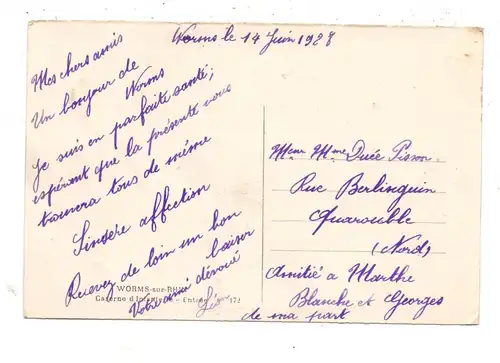 Worms le 14 Juin 1928
Mes chers amis
Un bonjour de
Worms
Je suis en parfaite santé;
espérant que la présente vous
trouvera tous de même
Sincère affection
Recevez de loin un bon
baiser
Votre ami dévoué
Léon
WORMS-sur-RHIN
Caserne d'Infanterie - Entrée
172
Meur Mme Ducée Pisson
Rue Berlinguin
Quarouble
(Nord)
Amitié à Marthe
Blanche et Georges
de ma part